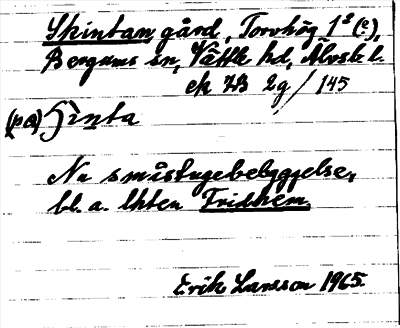 Skintan gård, Torvhög 1² (c),
Bergums sn, Vättle hd, Älvsb l.
ek 7B 2g/145
(pa) Hinta
Nu småstugebebyggelse,
bl. a. lhten Fridhem.
Erik Larsson 1965.